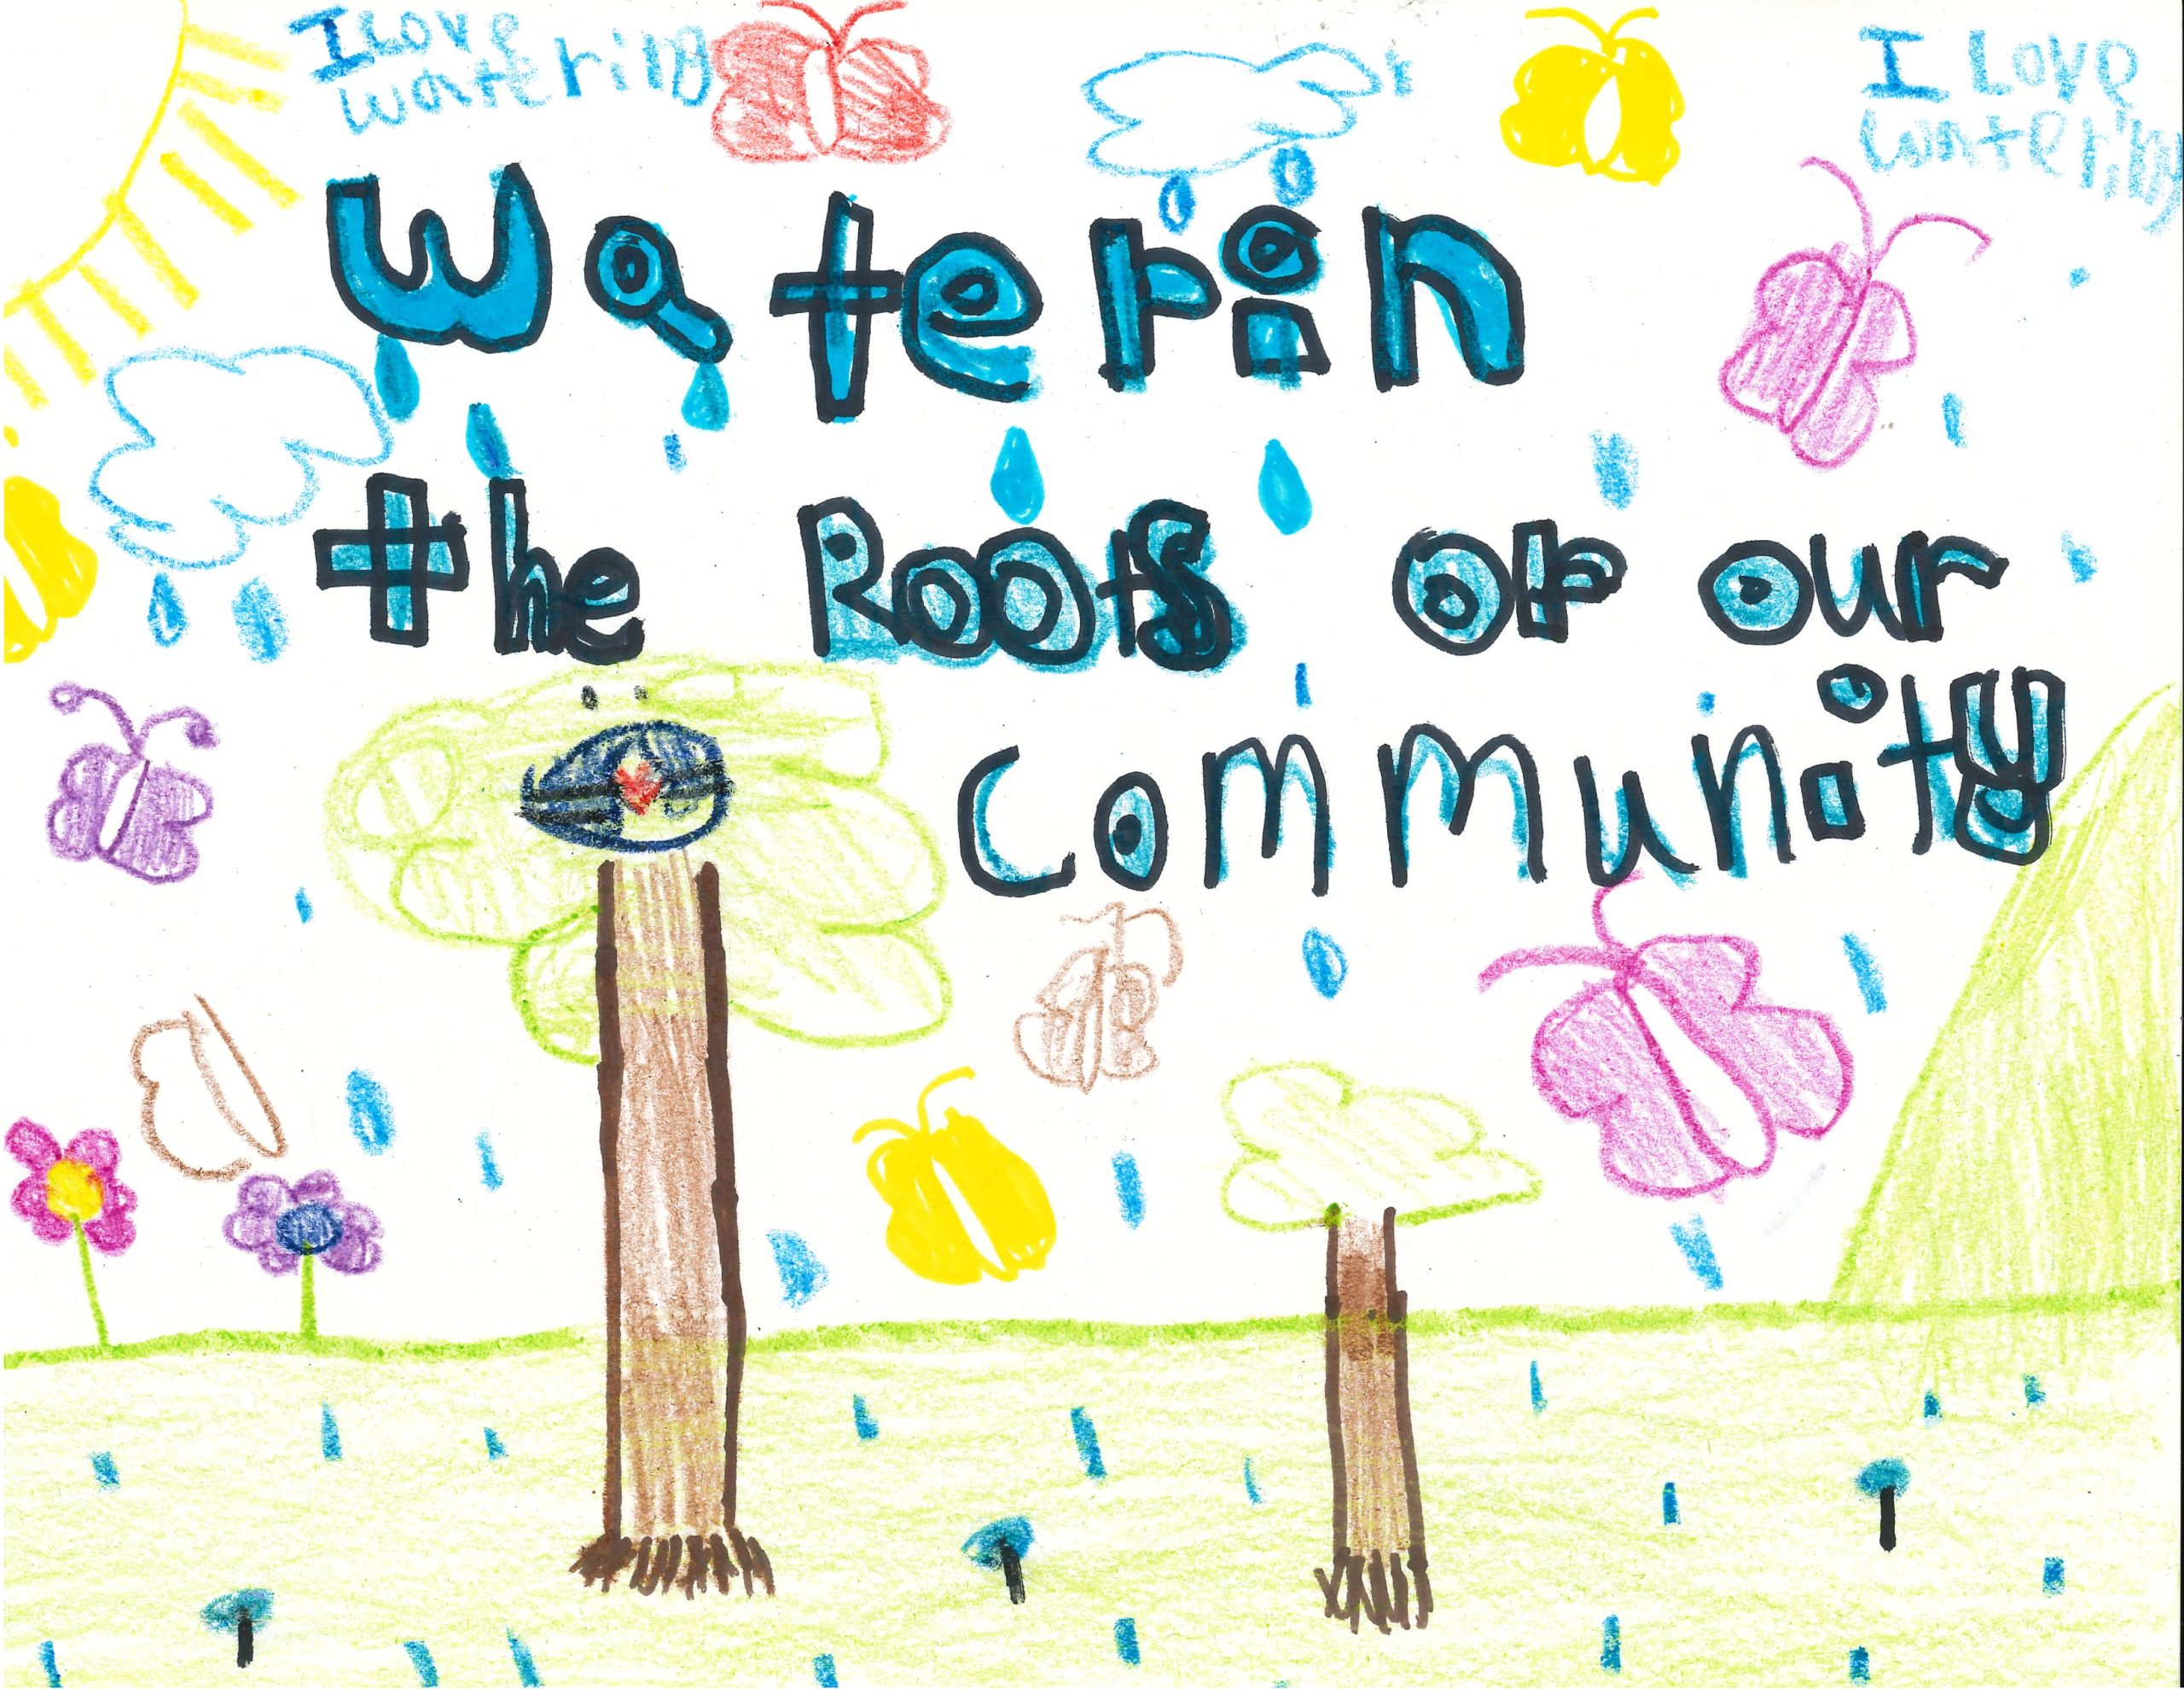 I Love
watering
I Love
watering
Waterin
the Roots of our
community